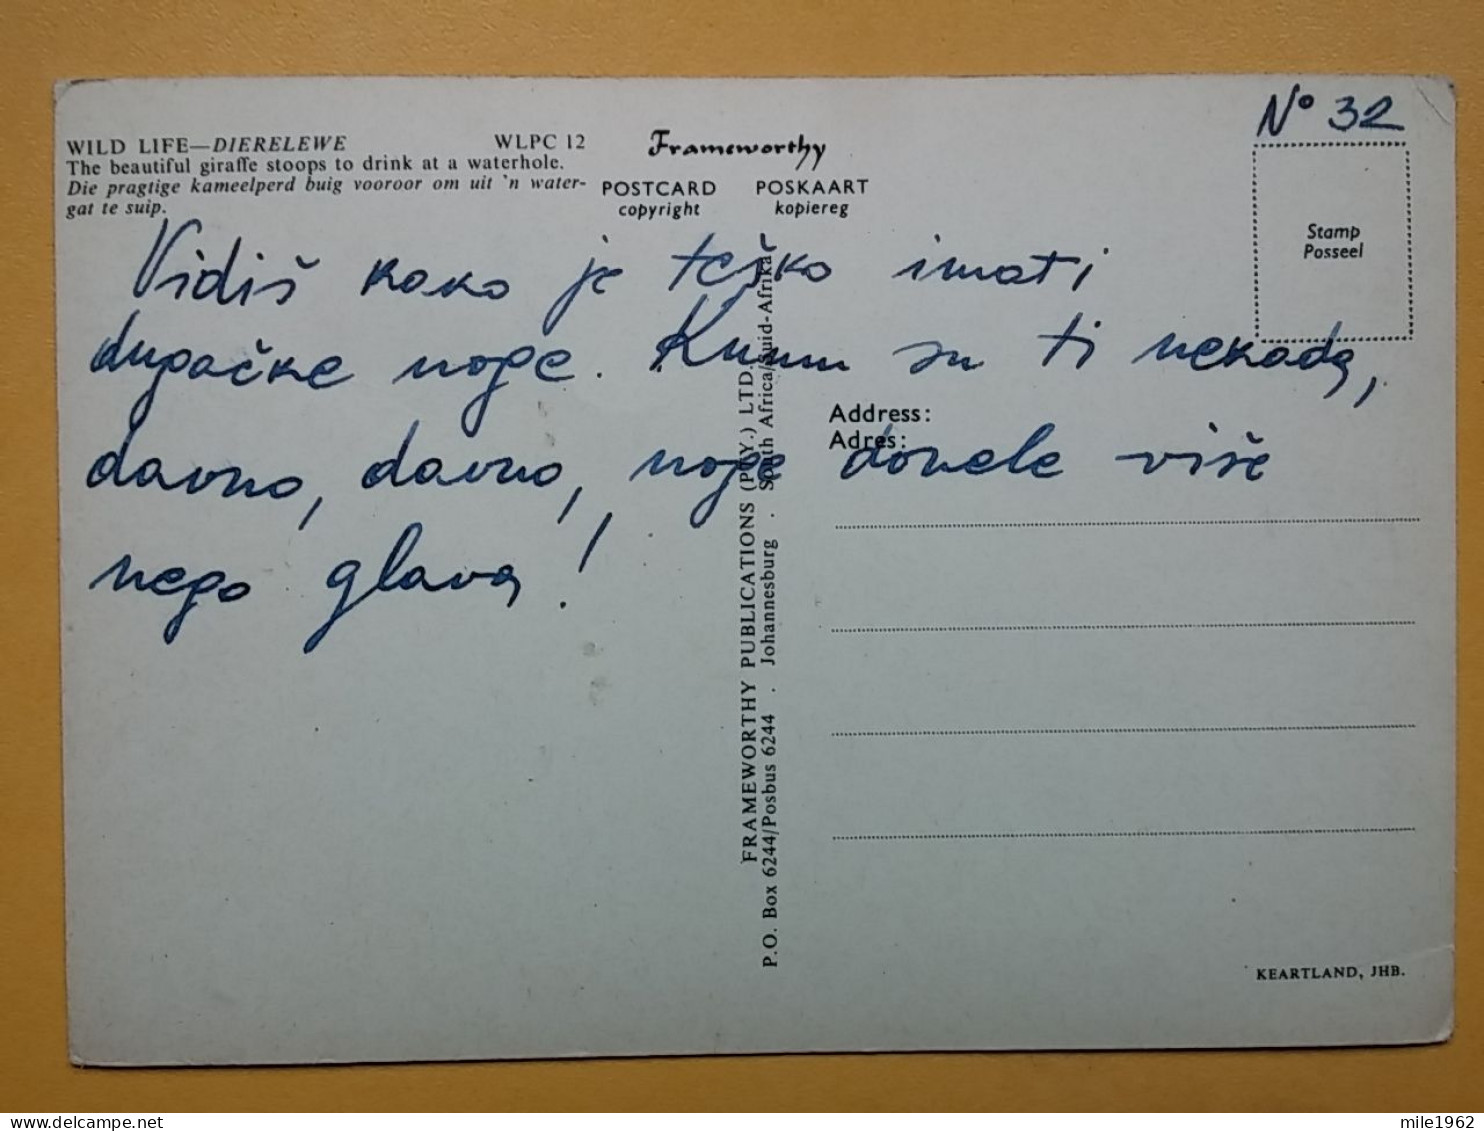 N° 32
WILD LIFE—DIERELEWE WLPC 12
The beautiful giraffe stoops to drink at a waterhole.
Die pragtige kameelperd buig vooroor om uit 'n water-
gat te suip.
Frameworthy
POSTCARD POSKAART
copyright kopiereg
Stamp
Posseel
Vidiš kako je teško imati
dugačke noge. Kunem su ti nekada,
davno, davno, noge donele više
nego glava!
Address:
Adres:
FRAMEWORTHY PUBLICATIONS (PTY.) LTD.
P.O. Box 6244/Posbus 6244 . Johannesburg . South Africa/Suid-Afrika
KEARTLAND, JHB.
mile1962